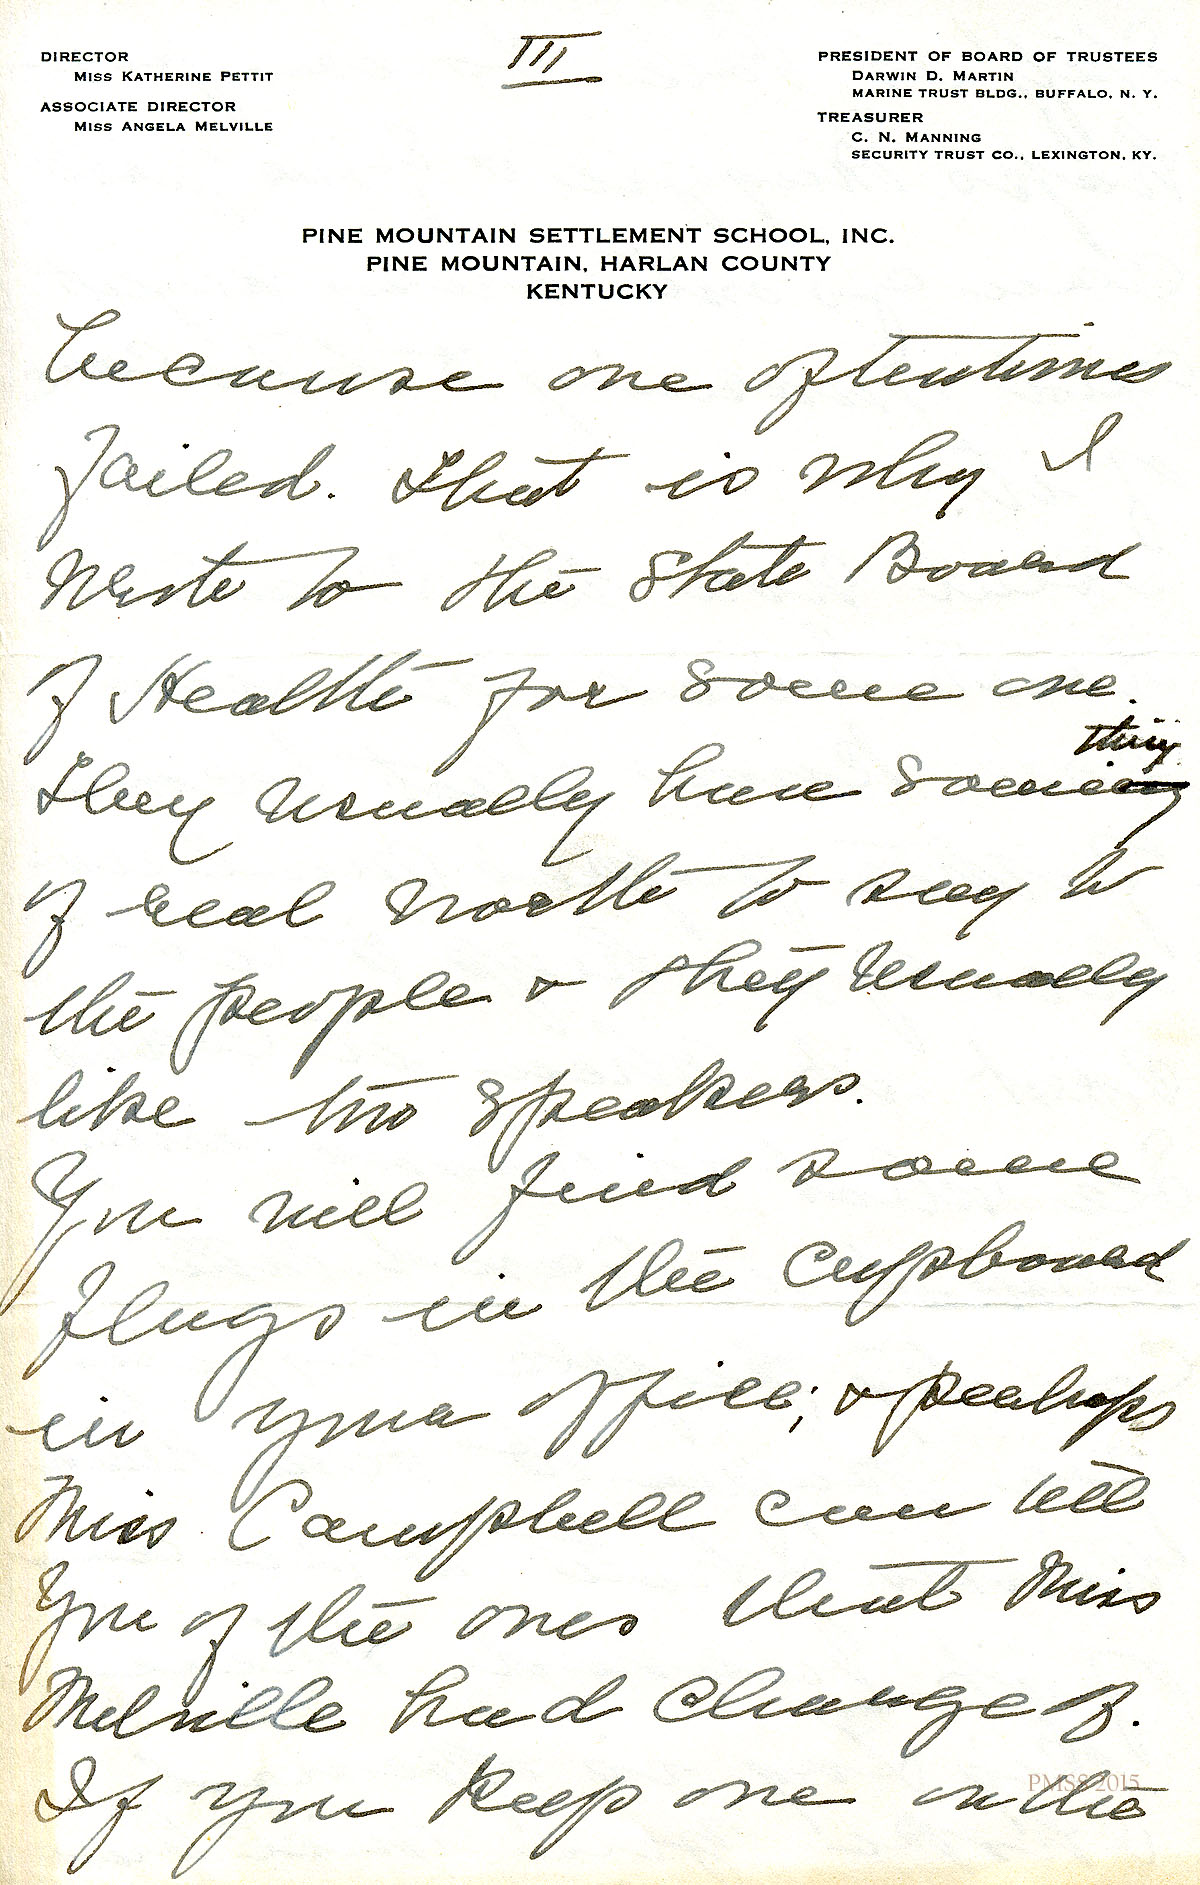 III
DIRECTOR
MISS KATHERINE PETTIT
ASSOCIATE DIRECTOR
MISS ANGELA MELVILLE
PRESIDENT OF BOARD OF TRUSTEES
DARWIN D. MARTIN
MARINE TRUST BLDG., BUFFALO, N. Y.
TREASURER
C. N. MANNING
SECURITY TRUST CO., LEXINGTON, KY.
PINE MOUNTAIN SETTLEMENT SCHOOL, INC.
PINE MOUNTAIN, HARLAN COUNTY
KENTUCKY
because one oftentimes
failed. That is why I
wrote to the State Board
of Health for some one.
thing
They usually have some
of real worth to say to
the people & they usually
like two speakers.
You will find some
flags in the cupboard
in your office; & perhaps
Miss Campbell can tell
you of the ones that Miss
Melville had charge of.
If you keep one on the
PMSS 2015